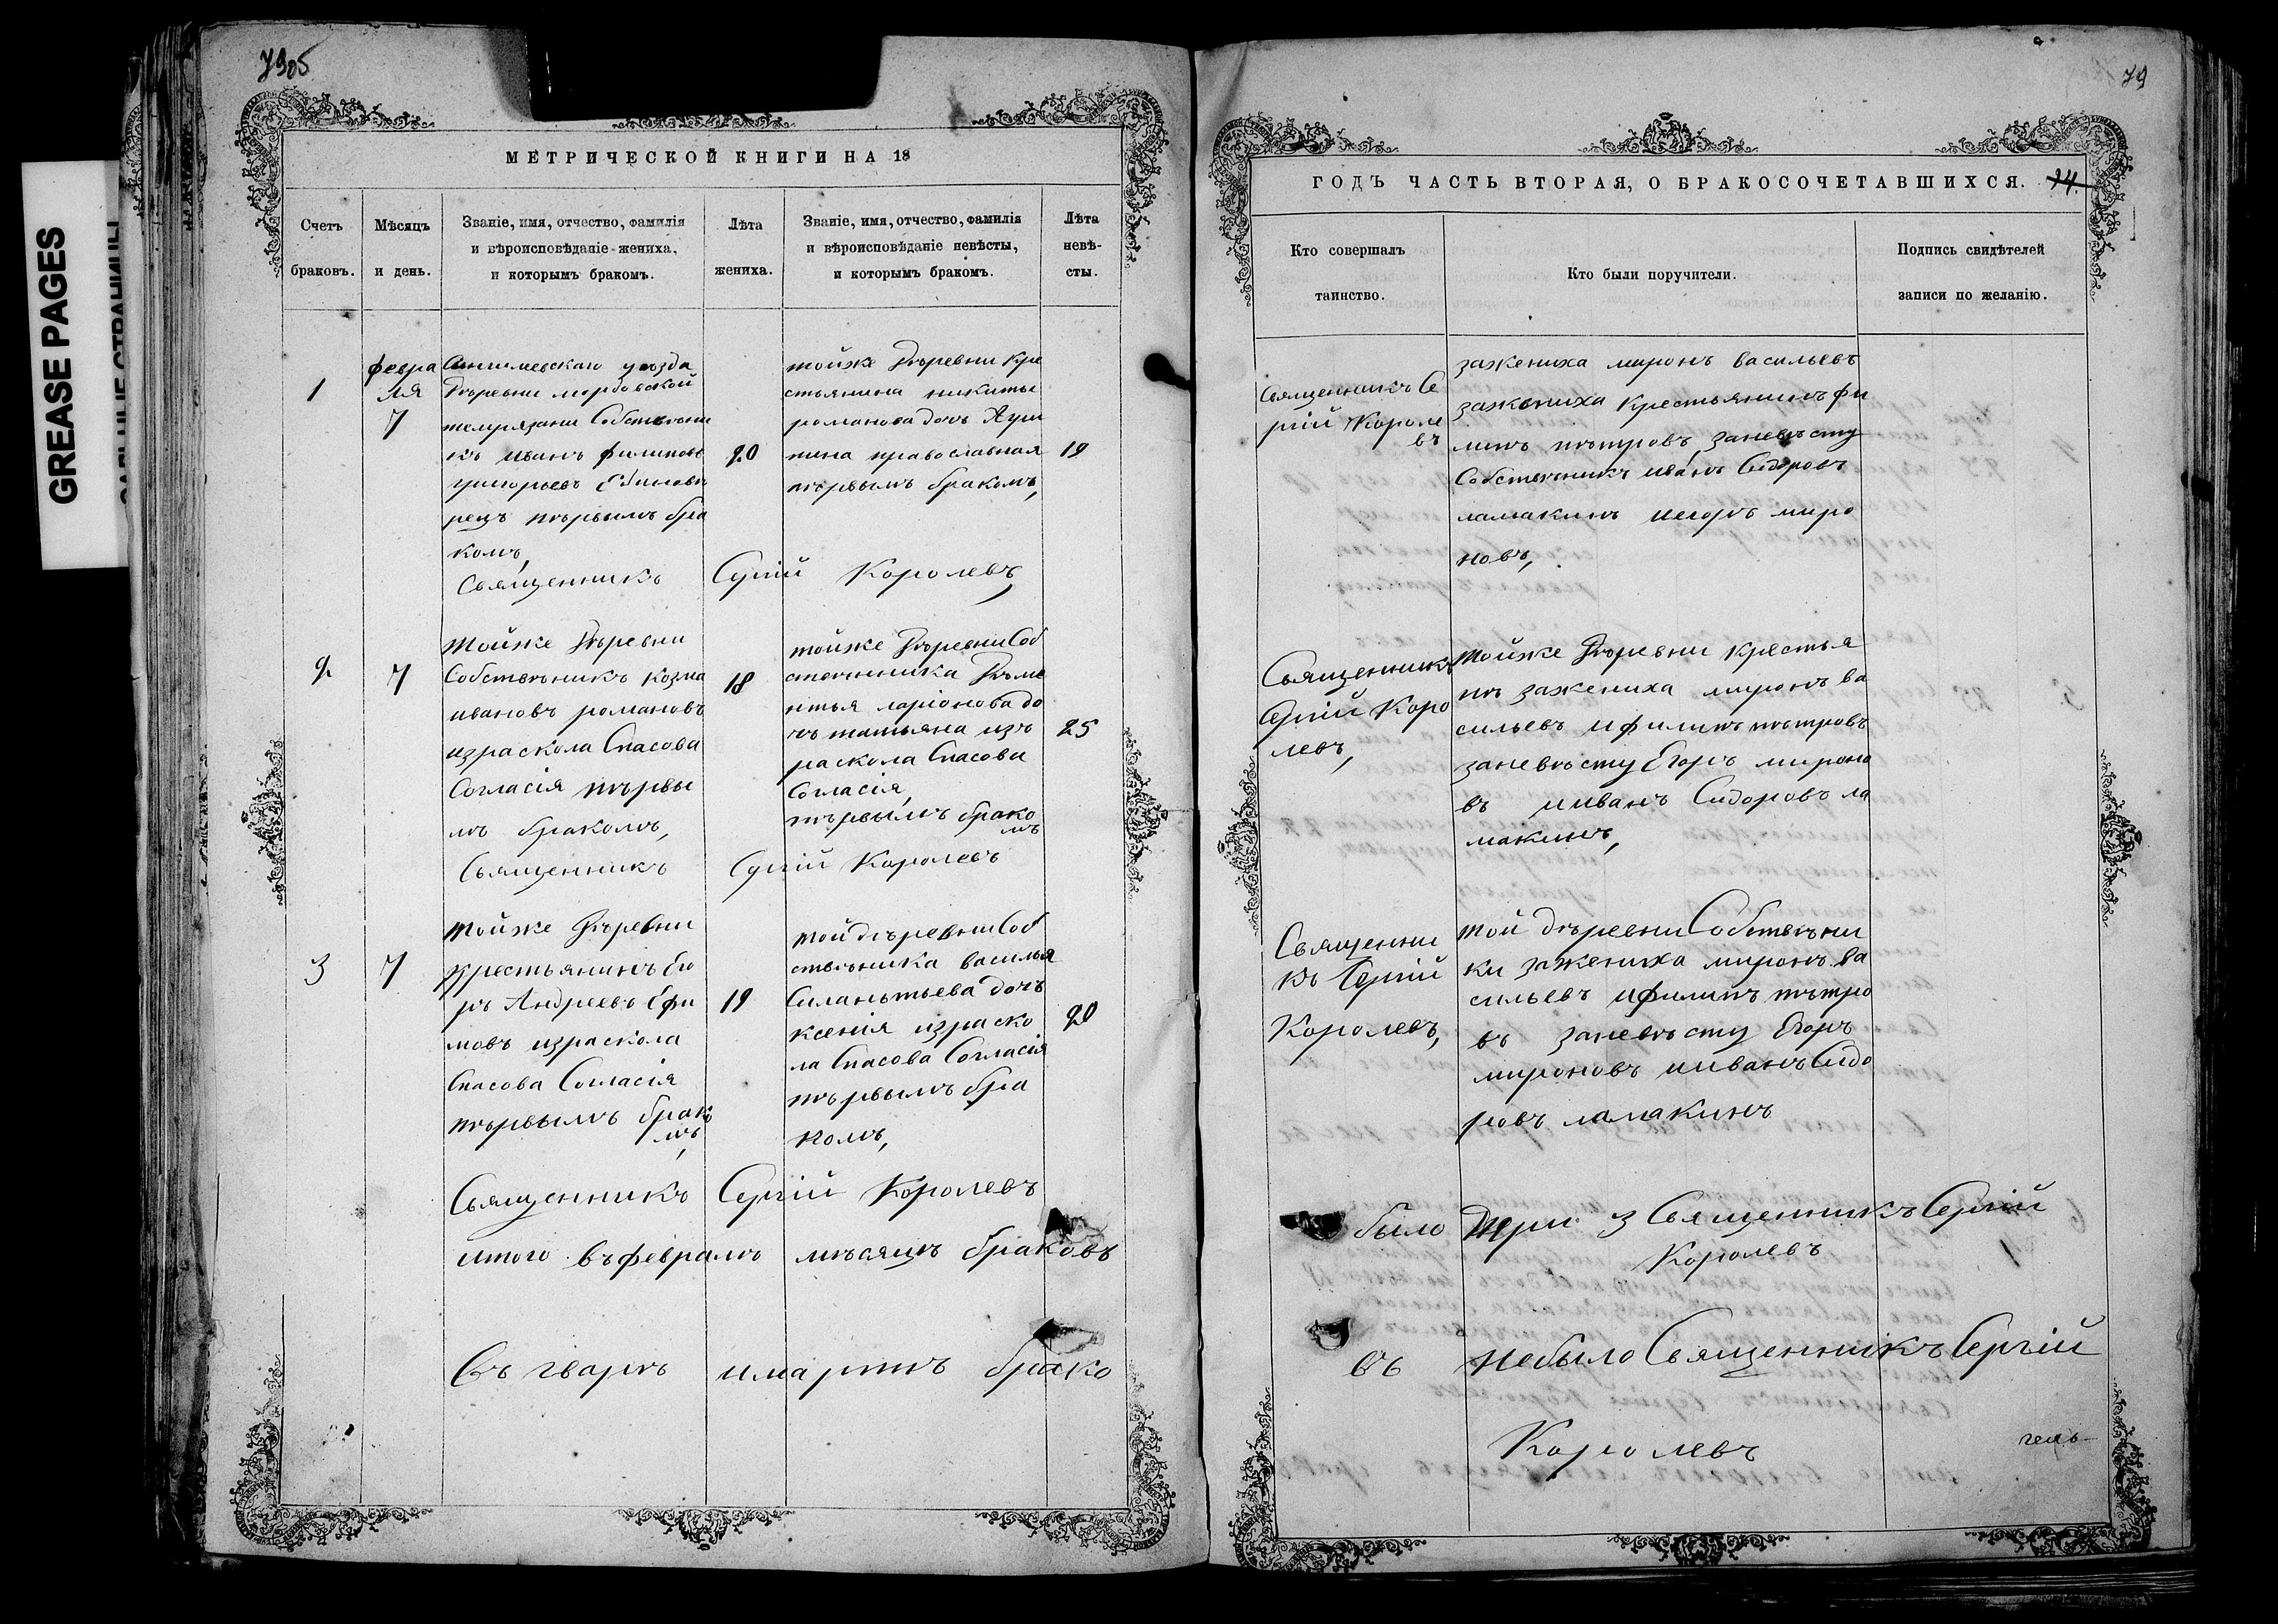 GREASE PAGES
7905
МЕТРИЧЕСКОЙ КНИГИ НА 18
Счетъ браковъ.
Мѣсяцъ и день.
Званіе, имя, отчество, фамилія
и вѣроисповѣданіе жениха,
и которымъ бракомъ.
Лѣта жениха.
Званіе, имя, отчество, фамилія
и вѣроисповѣданіе невѣсты,
и которымъ бракомъ.
Лѣта невѣ-
сты.
1
февра
ля
7
уѣзда
Дѣревни мордовской
темрязани Собствѣнни
къ иванъ филипов
григорьевъ Единовѣ
рецъ пѣрвымъ бра
комъ,
20
тойже Дѣревни кре
стьянина никиты
романова дочь
православная
пѣрвымъ бракомъ,
19
Священникъ Сергій Королевъ,
2
7
Тойже Дѣревни
Собствѣникъ козма
ивановъ романовъ
израскола Спасова
Согласія пѣрвы
мъ бракомъ,
18
тойже Дѣревни Соб
ственника Дѣме
нтья ларіонова до
чь татьяна изъ
раскола Спасова
Согласія,
пѣрвымъ брако
мъ
25
Священникъ Сергій Королевъ
3
7
Тойже Дѣревни
крестьянинъ Его
ръ Андреевъ Ефи
мовъ израскола
Спасова Согласія
пѣрвымъ брако
мъ,
19
Той дѣревни Соб
ствѣника василья
Силаньтьева дочь
ксенія израско
ла Спасова Согласія
пѣрвымъ бра
комъ,
20
Священникъ Сергій Королевъ
итого въфевралѣ мѣсяцѣ браковъ
Въ гварѣ имартѣ брако
79
ГОДЪ ЧАСТЬ ВТОРАЯ, О БРАКОСОЧЕТАВШИХСЯ. 14.
Кто совершалъ
таинство.
Кто были поручители.
Подпись свидѣтелей
записи по желанію.
Священникъ Се
ргій Короле
въ
зажениха миронъ васильевъ
зажениха крестьянинъ фи
липъ пѣтровъ, заневѣсту
Собствѣникъ иванъ Сидоровъ
ламакинъ иегоръ миро
новъ,
Священникъ
Сергій Коро
левъ,
Тойже Дѣревни крестья
нѣ зажениха миронъ ва
сильевъ ифилипъ пѣтровъ
заневѣсту Егоръ мироно
въ ииванъ Сидоровъ ла
макинъ,
Священни
къ Сергій
Королевъ,
Той дѣревни Собствѣни
ки зажениха миронъ ва
сильевъ ифилипъ пѣтро
въ заневѣсту Егоръ
мироновъ ииванъ Сидо
ровъ ламакинъ
было три 3 Священникъ Сергій
Королевъ
въ небыло Священникъ Сергій
Королевъ